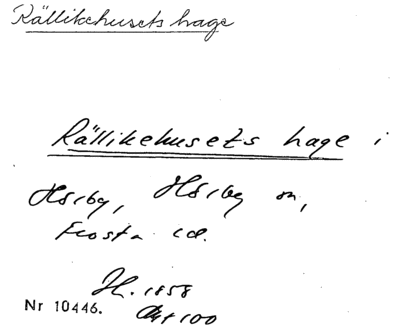 Källikehusets hage
Källikehusets hage i
Hörby, Hörby sn,
Frosta hd.
H. 1858
Nr 10446. Akt 100